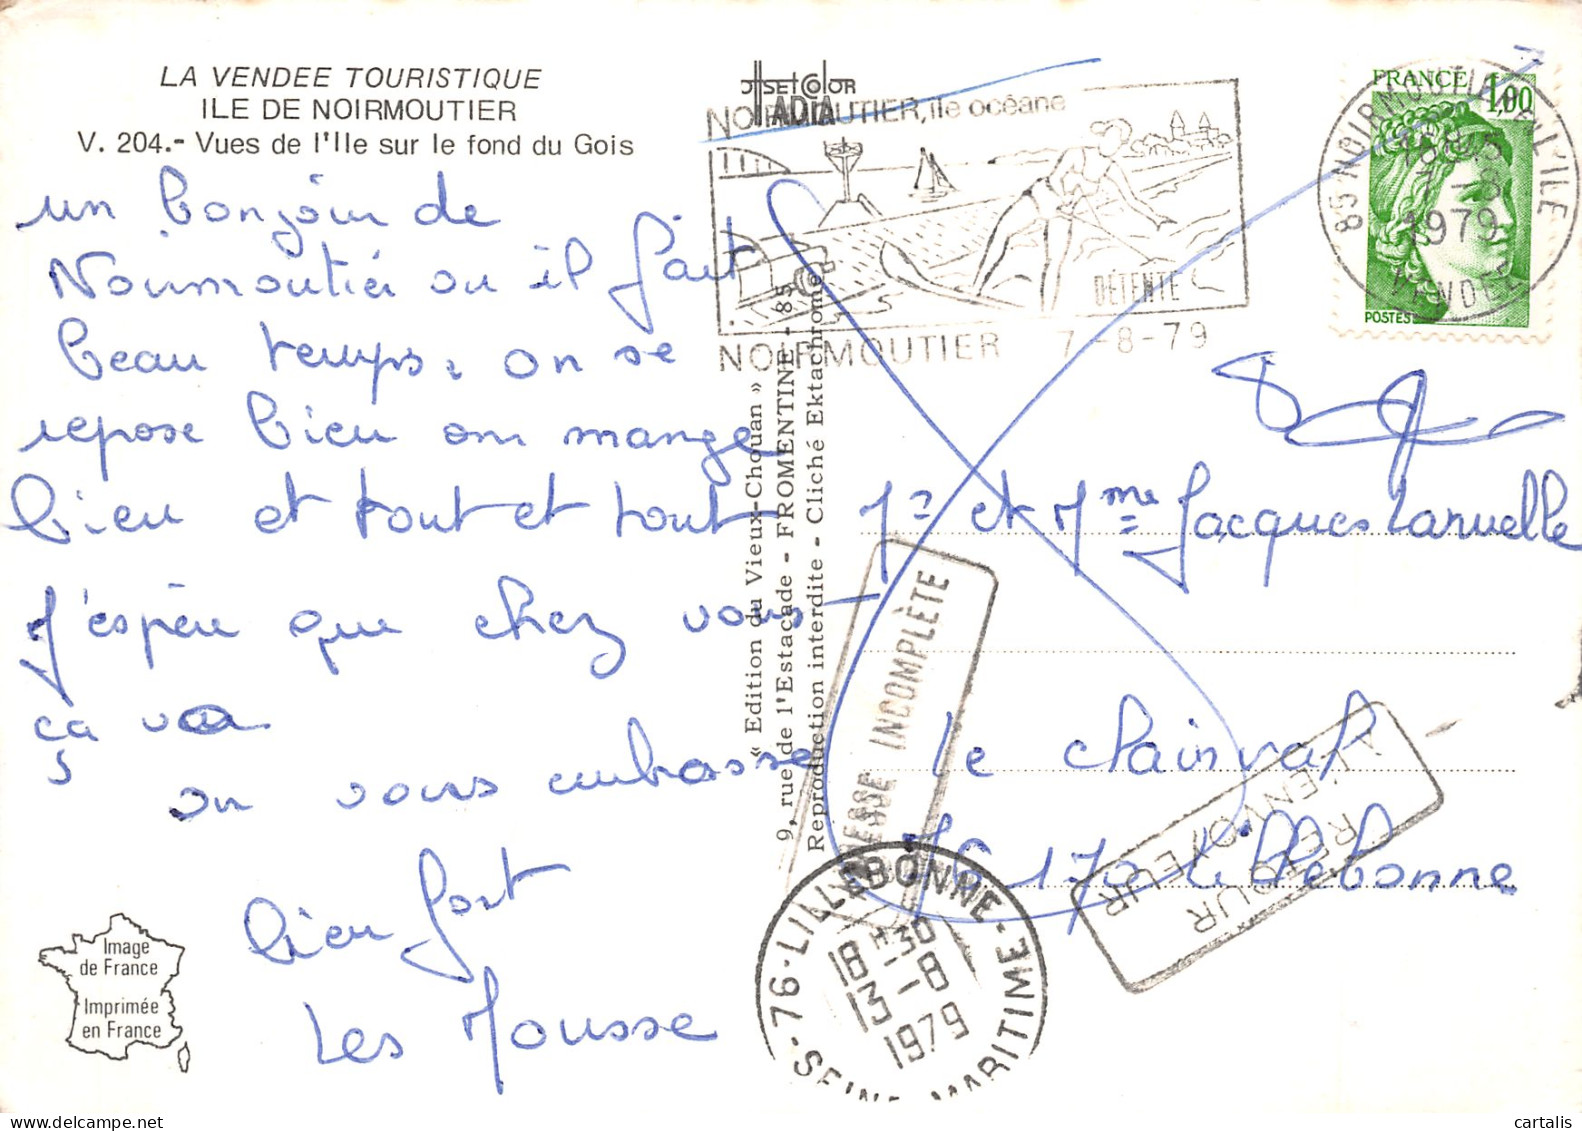 LA VENDEE TOURISTIQUE
ILE DE NOIRMOUTIER
V. 204.- Vues de l'Ile sur le fond du Gois
un bonjour de
Noirmoutier ou il fait
beau temps. on se
repose bien on mange
bien et tout et tout
J'espère que chez vous
ça va
on vous embrasse
bien fort
Les Mousse
Image
de France
Imprimée
en France
OffsetColor
IADIA
« Edition du Vieux-Chouan »
9, rue de l'Estacade - FROMENTINE - 85
Reproduction interdite - Cliché Ektachrome
NOIRMOUTIER, île océane
DÉTENTE
NOIRMOUTIER 7-8-79
FRANCE 1,00
POSTES
85 NOIRMOUTIER EN L'ILE
1979
VENDEE
Mr et Mme Jacques Laruelle
le Clairval
76170 Lillebonne
ADRESSE INCOMPLÈTE
RETOUR
A L'ENVOYEUR
76-LILLEBONNE-
18H30
13-8
1979
SEINE MARITIME
cartalis